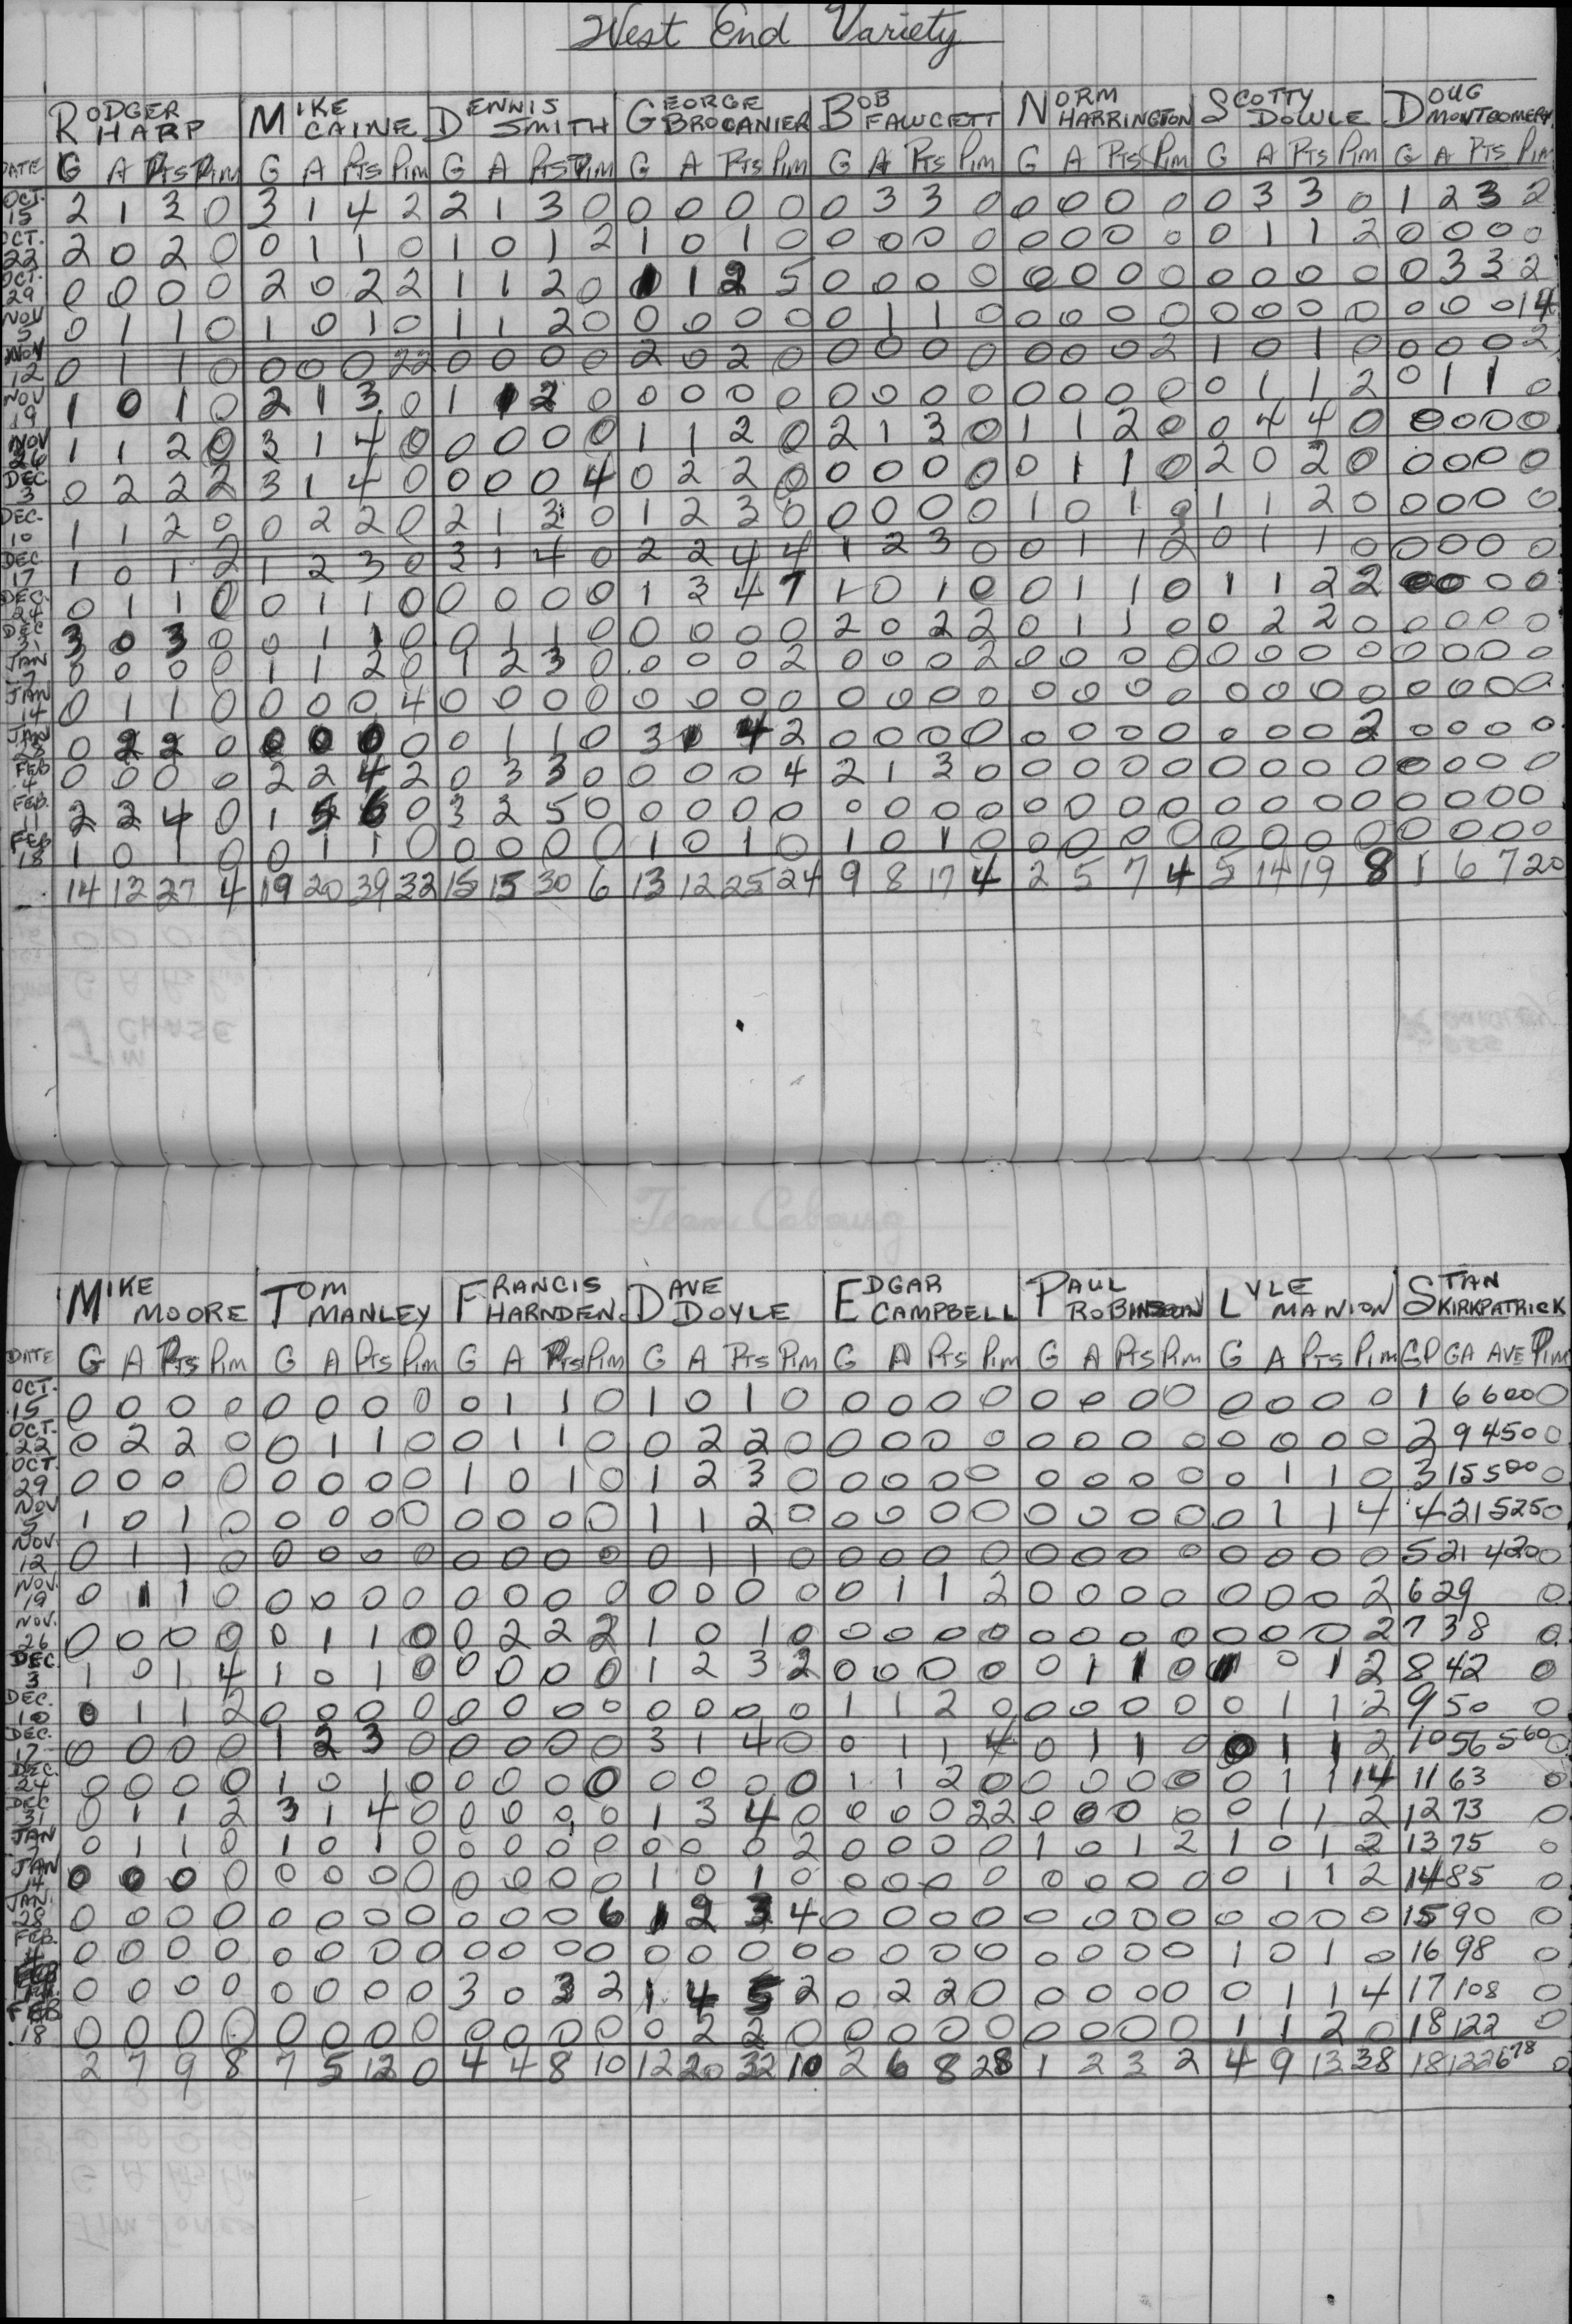 West End Variety
RODGER HARP MIKE CAINE DENNIS SMITH GEORGE BROCANIER BOB FAWCETT NORM HARRINGTON SCOTTY DOWLE DOUG MONTGOMERY
DATE G A PTS PIM G A PTS PIM G A PTS PIM G A PTS PIM G A PTS PIM G A PTS PIM G A PTS PIM G A PTS PIM
OCT. 15 2 1 3 0 3 1 4 2 2 1 3 0 0 0 0 0 0 3 3 0 0 0 0 0 0 3 3 0 1 2 3 2
OCT. 22 2 0 2 0 0 1 1 0 1 0 1 2 1 0 1 0 0 0 0 0 0 0 0 0 0 1 1 2 0 0 0 0
OCT. 29 0 0 0 0 2 0 2 2 1 1 2 0 1 1 2 5 0 0 0 0 0 0 0 0 0 0 0 0 0 3 3 2
NOV 5 0 1 1 0 1 0 1 0 1 1 2 0 0 0 0 0 0 1 1 0 0 0 0 0 0 0 0 0 0 0 0 14
NOV 12 0 1 1 0 0 0 0 22 0 0 0 0 2 0 2 0 0 0 0 0 0 0 0 2 1 0 1 0 0 0 0 2
NOV 19 1 0 1 0 2 1 3 0 1 1 2 0 0 0 0 0 0 0 0 0 0 0 0 0 0 1 1 2 0 1 1 0
NOV 26 1 1 2 0 3 1 4 0 0 0 0 0 1 1 2 0 2 1 3 0 1 1 2 0 0 4 4 0 0 0 0 0
DEC 3 0 2 2 2 3 1 4 0 0 0 0 4 0 2 2 0 0 0 0 0 0 1 1 0 2 0 2 0 0 0 0 0
DEC. 10 1 1 2 0 0 2 2 0 2 1 3 0 1 2 3 0 0 0 0 0 1 0 1 0 1 1 2 0 0 0 0 0
DEC 17 1 0 1 2 1 2 3 0 3 1 4 0 2 2 4 4 1 2 3 0 0 1 1 2 0 1 1 0 0 0 0 0
DEC. 24 0 1 1 0 0 1 1 0 0 0 0 0 1 3 4 7 1 0 1 0 0 1 1 0 1 1 2 2 0 0 0 0
DEC 31 3 0 3 0 0 1 1 0 0 1 1 0 0 0 0 0 2 0 2 2 0 1 1 0 0 2 2 0 0 0 0 0
JAN 7 0 0 0 0 1 1 2 0 1 2 3 0 0 0 0 2 0 0 0 2 0 0 0 0 0 0 0 0 0 0 0 0
JAN 14 0 1 1 0 0 0 0 4 0 0 0 0 0 0 0 0 0 0 0 0 0 0 0 0 0 0 0 0 0 0 0 0
JAN 28 0 2 2 0 0 0 0 0 0 1 1 0 3 1 4 2 0 0 0 0 0 0 0 0 0 0 0 2 0 0 0 0
FEB 4 0 0 0 0 2 2 4 2 0 3 3 0 0 0 0 4 2 1 3 0 0 0 0 0 0 0 0 0 0 0 0 0
FEB. 11 2 2 4 0 1 5 6 0 3 2 5 0 0 0 0 0 0 0 0 0 0 0 0 0 0 0 0 0 0 0 0 0
FEB 18 1 0 1 0 0 1 1 0 0 0 0 0 1 0 1 0 1 0 1 0 0 0 0 0 0 0 0 0 0 0 0 0
14 13 27 4 19 20 39 32 15 15 30 6 13 12 25 24 9 8 17 4 2 5 7 4 5 14 19 8 1 6 7 20
MIKE MOORE TOM MANLEY FRANCIS HARNDEN DAVE DOYLE EDGAR CAMPBELL PAUL ROBINSON LYLE MANION STAN KIRKPATRICK
DATE G A PTS PIM G A PTS PIM G A PTS PIM G A PTS PIM G A PTS PIM G A PTS PIM G A PTS PIM GP GA AVE PIM
OCT. 15 0 0 0 0 0 0 0 0 0 1 1 0 1 0 1 0 0 0 0 0 0 0 0 0 0 0 0 0 1 6 600 0
OCT. 22 0 2 2 0 0 1 1 0 0 1 1 0 0 2 2 0 0 0 0 0 0 0 0 0 0 0 0 0 2 9 450 0
OCT. 29 0 0 0 0 0 0 0 0 1 0 1 0 1 2 3 0 0 0 0 0 0 0 0 0 0 1 1 0 3 15 500 0
NOV 5 1 0 1 0 0 0 0 0 0 0 0 0 1 1 2 0 0 0 0 0 0 0 0 0 0 1 1 4 4 21 525 0
NOV. 12 0 1 1 0 0 0 0 0 0 0 0 0 0 1 1 0 0 0 0 0 0 0 0 0 0 0 0 0 5 21 420 0
NOV. 19 0 1 1 0 0 0 0 0 0 0 0 0 0 0 0 0 0 1 1 2 0 0 0 0 0 0 0 2 6 29 0
NOV. 26 0 0 0 0 0 1 1 0 0 2 2 2 1 0 1 0 0 0 0 0 0 0 0 0 0 0 0 2 7 38 0
DEC. 3 1 0 1 4 1 0 1 0 0 0 0 0 1 2 3 2 0 0 0 0 0 1 1 0 1 0 1 2 8 42 0
DEC. 10 0 1 1 2 0 0 0 0 0 0 0 0 0 0 0 0 1 1 2 0 0 0 0 0 0 1 1 2 9 50 0
DEC. 17 0 0 0 0 1 2 3 0 0 0 0 0 3 1 4 0 0 1 1 4 0 1 1 0 0 1 1 2 10 56 560 0
DEC. 24 0 0 0 0 1 0 1 0 0 0 0 0 0 0 0 0 1 1 2 0 0 0 0 0 0 1 1 14 11 63 0
DEC 31 0 1 1 2 3 1 4 0 0 0 0 0 1 3 4 0 0 0 0 22 0 0 0 0 0 1 1 2 12 73 0
JAN 7 0 1 1 0 1 0 1 0 0 0 0 0 0 0 0 2 0 0 0 0 1 0 1 2 1 0 1 2 13 75 0
JAN 14 0 0 0 0 0 0 0 0 0 0 0 0 1 0 1 0 0 0 0 0 0 0 0 0 0 1 1 2 14 85 0
JAN. 28 0 0 0 0 0 0 0 0 0 0 0 6 1 2 3 4 0 0 0 0 0 0 0 0 0 0 0 0 15 90 0
FEB. 4 0 0 0 0 0 0 0 0 0 0 0 0 0 0 0 0 0 0 0 0 0 0 0 0 1 0 1 0 16 98 0
FEB 11 0 0 0 0 0 0 0 0 3 0 3 2 1 4 5 2 0 2 2 0 0 0 0 0 0 1 1 4 17 108 0
FEB 18 0 0 0 0 0 0 0 0 0 0 0 0 0 2 2 0 0 0 0 0 0 0 0 0 1 1 2 0 18 122 0
2 7 9 8 7 5 12 0 4 4 8 10 12 20 32 10 2 6 8 28 1 2 3 2 4 9 13 38 18 122 678 0